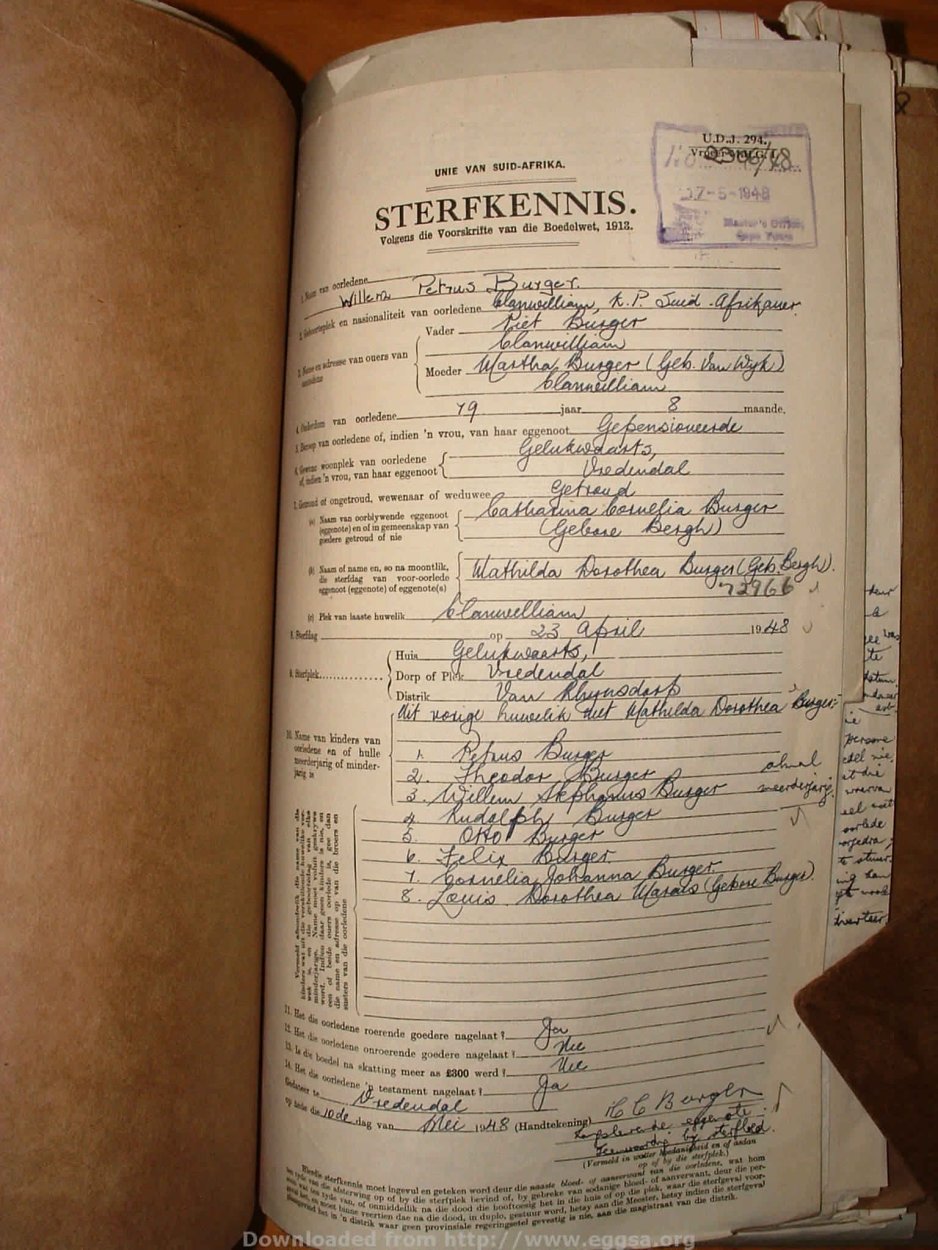 U.D.J. 294.
2396/48
17-5-1948
Master's Office,
Cape Town
UNIE VAN SUID-AFRIKA.
STERFKENNIS.
Volgens die Voorskrifte van die Boedelwet, 1913.
1. Naam van oorledene Willem Petrus Burger.
2. Geboorteplek en nasionaliteit van oorledene Clanwilliam, K.P. Suid-Afrikaner
3. Name en adresse van ouers van oorledene
Vader Piet Burger
Clanwilliam
Moeder Martha Burger (Geb. Van Wyk)
Clanwilliam
4. Ouderdom van oorledene 79 jaar 8 maande.
5. Beroep van oorledene of, indien 'n vrou, van haar eggenoot Gepensioneerde
6. Gewone woonplek van oorledene of, indien 'n vrou, van haar eggenoot
Gelukwaarts,
Vredendal
7. Getroud of ongetroud, wewenaar of weduwee Getroud
(a) Naam van oorblywende eggenoot (eggenote) en of in gemeenskap van goedere getroud of nie
Catharina Cornelia Burger
(Gebore Bergh)
(b) Naam of name en, so na moontlik, die sterfdag van voor-oorlede eggenoot (eggenote) of eggenote(s)
Mathilda Dorothea Burger (Geb. Bergh).
72966
(c) Plek van laaste huwelik Clanwilliam
8. Sterfdag op 23 April 1948
9. Sterfplek
Huis Gelukwaarts,
Dorp of Plek Vredendal
Distrik Van Rhynsdorp
10. Name van kinders van oorledene en of hulle meerderjarig of minderjarig is
Uit vorige huwelik met Mathilda Dorothea Burger:-
1. Petrus Burger
2. Theodor Burger almal
3. Willem Stephanus Burger meerderjarig.
4. Rudolph Burger
5. Otto Burger
6. Felix Burger
7. Cornelia Johanna Burger
8. Louis Dorothea Marais (Gebore Burger)
Vermeld afsonderlik die name van die
kinders wat uit die verskillende huwelike verwek
is, en die geboortedag van elke
minderjarige. Name moet voluit geskrywe
word. Indien daar geen kinders is nie, en
een of beide ouers oorlede is, gee dan
die name en adresse op van die broers en
susters van die oorledene
11. Het die oorledene roerende goedere nagelaat? Ja
12. Het die oorledene onroerende goedere nagelaat? Nee
13. Is die boedel na skatting meer as £300 werd? Nee
14. Het die oorledene 'n testament nagelaat? Ja
Gedateer te Vredendal
op hede die 10de dag van Mei 1948 (Handtekening) C C Burger
Langslewende eggenote.
Teenwoordig by sterfbed.
(Vermeld in watter hoedanigheid en of aldan
op of by die sterfplek.)
Hierdie sterfkennis moet ingevul en geteken word deur die naaste bloed- of aanverwant van die oorledene, wat hom
ten tyde van die afsterwing op of by die sterfplek bevind of, by gebreke van sodanige bloed- of aanverwant, deur die persoon
wat ten tyde van, of onmiddellik na die dood die hooftoesig het in die huis of op die plek, waar die sterfgeval voorgeval
het, en moet binne veertien dae na die dood, in duplo, gestuur word, hetsy aan die Meester, hetsy indien die sterfgeval
plaasgevind het in 'n distrik waar geen provinsiale regeringsetel gevestig is nie, aan die magistraat van die distrik.
Downloaded from http://www.eggsa.org